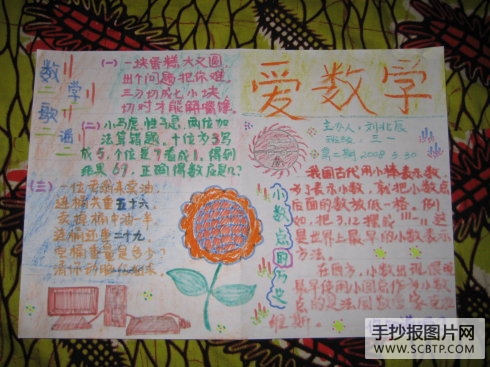 数学歌谣
(一) 一块蛋糕大又圆,
出个问题把你难,
三刀切成七小块,
切对才能解嘴馋
(二) 小马虎性子急,两位加
法算错题,十位
成5,个位是 看成1,得到
结果69,正确得数应是几?
(三) 一位 来卖油,
连桶共重五十六
卖掉桶中油一半
连桶还重二十九
空桶重量是多少?
爱数学
主办人:刘北辰
班级:三一
第二期 2008 3 30
小数点
我国古代用小棒表示数,
为了表示小数,就把小数点
后面的数放低一格,例
如,把3.12摆成
这是世界上最早的小数表示
方法。
在西方,小数出现很晚
最早使用小圆点作为小数
点的是
维斯。
手抄报图片网
WWW.SCBTP.COM